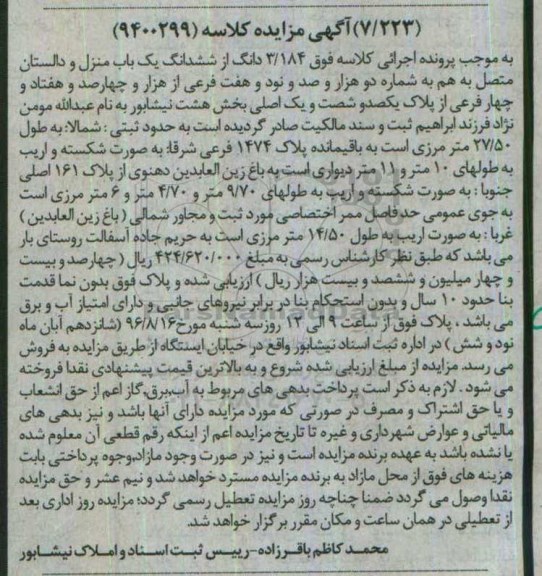 (۷/۲۲۳) آگهی مزایده کلاسه (۹۴۰۰۲۹۹)
به موجب پرونده اجرائی کلاسه فوق ۳/۱۸۴ دانگ از ششدانگ یک باب منزل و دالستان
متصل به هم به شماره دو هزار و صد و نود و هفت فرعی از هزار و چهارصد و هفتاد و
چهار فرعی از پلاک یکصدو شصت و یک اصلی بخش هشت نیشابور به نام عبدالله مومن
نژاد فرزند ابراهیم ثبت و سند مالکیت صادر گردیده است به حدود ثبتی : شمالا: به طول
۲۷/۵۰ متر مرزی است به باقیمانده پلاک ۱۴۷۴ فرعی شرقا: به صورت شکسته و اریب
به طولهای ۱۰ متر و ۱۱ متر دیواری است به باغ زین العابدین دهنوی از پلاک ۱۶۱ اصلی
جنوبا : به صورت شکسته و اریب به طولهای ۹/۷۰ متر و ۴/۷۰ متر و ۶ متر مرزی است
به جوی عمومی حدفاصل ممر اختصاصی مورد ثبت و مجاور شمالی ( باغ زین العابدین )
غربا : به صورت اریب به طول ۱۴/۵۰ متر مرزی است به حریم جاده آسفالت روستای بار
می باشد که طبق نظر کارشناس رسمی به مبلغ ۴۲۴/۶۲۰/۰۰۰ ریال ( چهارصد و بیست
و چهار میلیون و ششصد و بیست هزار ریال ) ارزیابی شده و پلاک فوق بدون نما قدمت
بنا حدود ۱۰ سال و بدون استحکام بنا در برابر نیروهای جانبی و دارای امتیاز آب و برق
می باشد ، پلاک فوق از ساعت ۹ الی ۱۲ روز سه شنبه مورخ ۹۶/۸/۱۶ (شانزدهم آبان ماه
نود و شش ) در اداره ثبت اسناد نیشابور واقع در خیابان ایستگاه از طریق مزایده به فروش
می رسد. مزایده از مبلغ ارزیابی شده شروع و به بالاترین قیمت پیشنهادی نقدا فروخته
می شود . لازم به ذکر است پرداخت بدهی های مربوط به آب،برق،گاز اعم از حق انشعاب
و یا حق اشتراک و مصرف در صورتی که مورد مزایده دارای آنها باشد و نیز بدهی های
مالیاتی و عوارض شهرداری و غیره تا تاریخ مزایده اعم از اینکه رقم قطعی آن معلوم شده
یا نشده باشد به عهده برنده مزایده است و نیز در صورت وجود مازاد،وجوه پرداختی بابت
هزینه های فوق از محل مازاد به برنده مزایده مسترد خواهد شد و نیم عشر و حق مزایده
نقدا وصول می گردد ضمنا چناچه روز مزایده تعطیل رسمی گردد؛ مزایده روز اداری بعد
از تعطیلی در همان ساعت و مکان مقرر برگزار خواهد شد.
محمد کاظم باقرزاده-رییس ثبت اسناد و املاک نیشابور